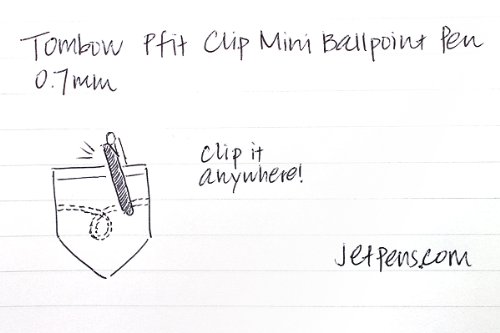 Tombow Pfit Clip Mini Ballpoint Pen
0.7mm
clip it
anywhere!
Jetpens.com